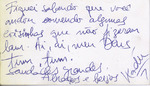 Fiquei sabendo que você
andou comendo algumas
coisinhas que não fizeram
bem. Ai, ai, meu Deus,
tum, tum.
Saudades grandes.
Abraços e beijos